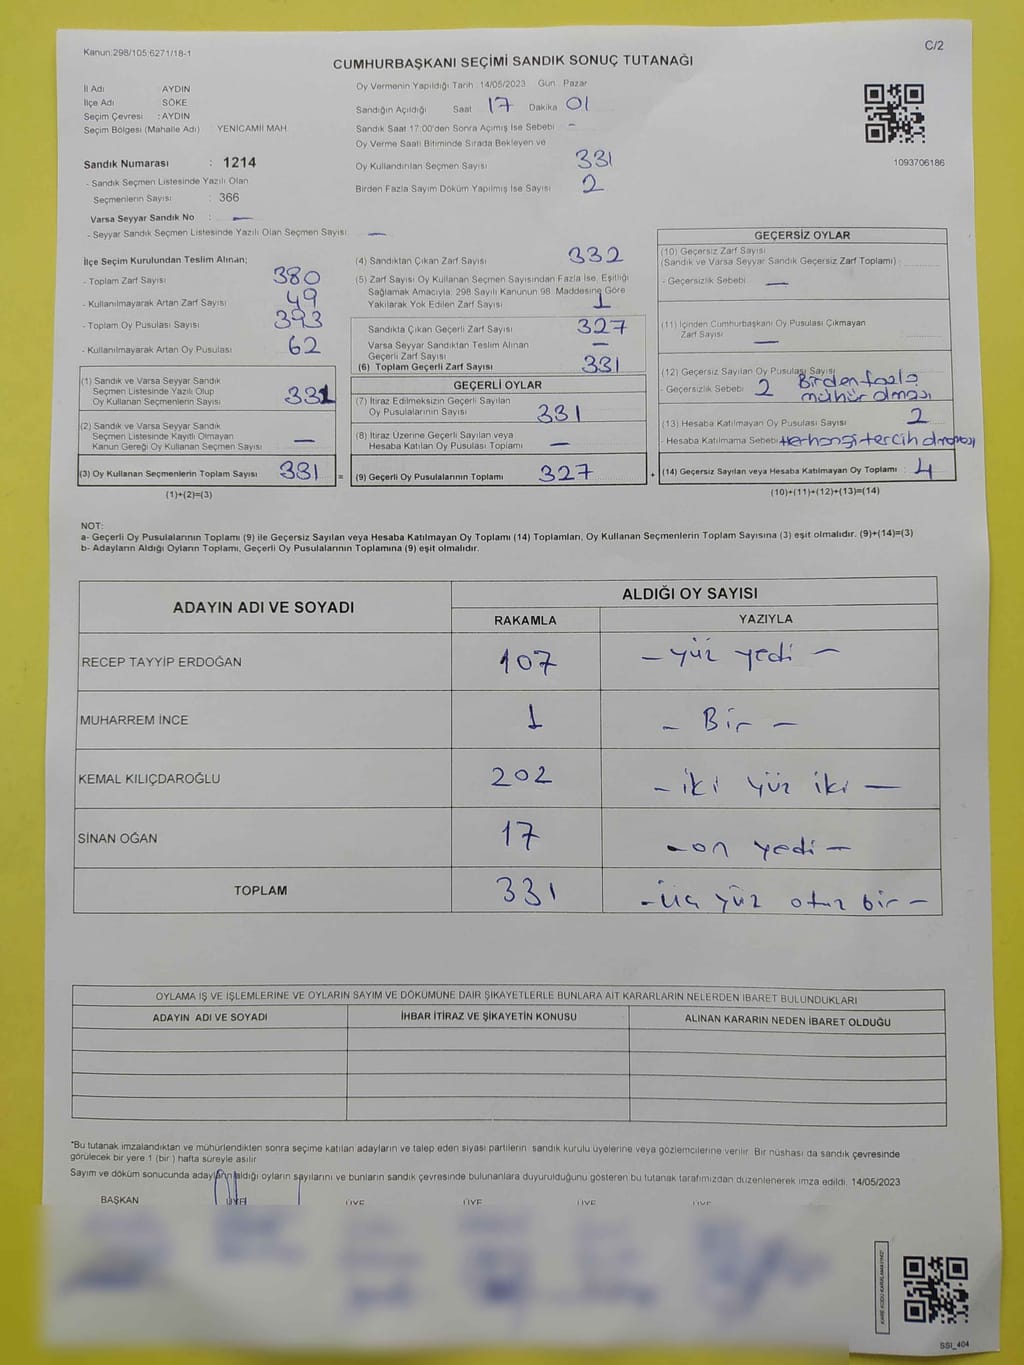 Kanun:298/105;6271/18-1
C/2
CUMHURBAŞKANI SEÇİMİ SANDIK SONUÇ TUTANAĞI
İl Adı : AYDIN
İlçe Adı : SÖKE
Seçim Çevresi : AYDIN
Seçim Bölgesi (Mahalle Adı) YENİCAMİİ MAH.
Sandık Numarası : 1214
- Sandık Seçmen Listesinde Yazılı Olan
Seçmenlerin Sayısı : 366
Varsa Seyyar Sandık No : —
- Seyyar Sandık Seçmen Listesinde Yazılı Olan Seçmen Sayısı: —
Oy Vermenin Yapıldığı Tarih 14/05/2023 Gün Pazar
Sandığın Açıldığı Saat 17 Dakika 01
Sandık Saat 17:00'den Sonra Açımış İse Sebebi -
Oy Verme Saati Bitiminde Sırada Bekleyen ve
Oy Kullandırılan Seçmen Sayısı 331
Birden Fazla Sayım Döküm Yapılmış İse Sayısı 2
1093706186
İlçe Seçim Kurulundan Teslim Alınan;
- Toplam Zarf Sayısı 380
- Kullanılmayarak Artan Zarf Sayısı 49
- Toplam Oy Pusulası Sayısı 393
- Kullanılmayarak Artan Oy Pusulası 62
(1) Sandık ve Varsa Seyyar Sandık
Seçmen Listesinde Yazılı Olup
Oy Kullanan Seçmenlerin Sayısı 331
(2) Sandık ve Varsa Seyyar Sandık
Seçmen Listesinde Kayıtlı Olmayan
Kanun Gereği Oy Kullanan Seçmen Sayısı —
(3) Oy Kullanan Seçmenlerin Toplam Sayısı 331
(1)+(2)=(3)
(4) Sandıktan Çıkan Zarf Sayısı 332
(5) Zarf Sayısı Oy Kullanan Seçmen Sayısından Fazla İse, Eşitliği
Sağlamak Amacıyla; 298 Sayılı Kanunun 98. Maddesine Göre
Yakılarak Yok Edilen Zarf Sayısı 1
Sandıkta Çıkan Geçerli Zarf Sayısı 327
Varsa Seyyar Sandıktan Teslim Alınan
Geçerli Zarf Sayısı —
(6) Toplam Geçerli Zarf Sayısı 331
GEÇERLİ OYLAR
(7) İtiraz Edilmeksizin Geçerli Sayılan
Oy Pusulalarının Sayısı 331
(8) İtiraz Üzerine Geçerli Sayılan veya
Hesaba Katılan Oy Pusulası Toplamı —
(9) Geçerli Oy Pusulalarının Toplamı 327
GEÇERSİZ OYLAR
(10) Geçersiz Zarf Sayısı
(Sandık ve Varsa Seyyar Sandık Geçersiz Zarf Toplamı) :
- Geçersizlik Sebebi —
(11) İçinden Cumhurbaşkanı Oy Pusulası Çıkmayan
Zarf Sayısı —
(12) Geçersiz Sayılan Oy Pusulası Sayısı
- Geçersizlik Sebebi 2 Birden fazla
mühür olması
(13) Hesaba Katılmayan Oy Pusulası Sayısı 2
- Hesaba Katılmama Sebebi Herhangi tercih olmaması
(14) Geçersiz Sayılan veya Hesaba Katılmayan Oy Toplamı : 4
(10)+(11)+(12)+(13)=(14)
NOT:
a- Geçerli Oy Pusulalarının Toplamı (9) ile Geçersiz Sayılan veya Hesaba Katılmayan Oy Toplamı (14) Toplamları, Oy Kullanan Seçmenlerin Toplam Sayısına (3) eşit olmalıdır. (9)+(14)=(3)
b- Adayların Aldığı Oyların Toplamı, Geçerli Oy Pusulalarının Toplamına (9) eşit olmalıdır.
ADAYIN ADI VE SOYADI
ALDIĞI OY SAYISI
RAKAMLA YAZIYLA
RECEP TAYYİP ERDOĞAN 107 - yüz yedi -
MUHARREM İNCE 1 - Bir -
KEMAL KILIÇDAROĞLU 202 - iki yüz iki -
SİNAN OĞAN 17 - on yedi -
TOPLAM 331 - üç yüz otuz bir -
OYLAMA İŞ VE İŞLEMLERİNE VE OYLARIN SAYIM VE DÖKÜMÜNE DAİR ŞİKAYETLERLE BUNLARA AİT KARARLARIN NELERDEN İBARET BULUNDUKLARI
ADAYIN ADI VE SOYADI İHBAR İTİRAZ VE ŞİKAYETİN KONUSU ALINAN KARARIN NEDEN İBARET OLDUĞU
*Bu tutanak imzalandıktan ve mühürlendikten sonra seçime katılan adayların ve talep eden siyasi partilerin sandık kurulu üyelerine veya gözlemcilerine verilir. Bir nüshası da sandık çevresinde
görülecek bir yere 1 (bir) hafta süreyle asılır.
Sayım ve döküm sonucunda adayların aldığı oyların sayılarını ve bunların sandık çevresinde bulunanlara duyurulduğunu gösteren bu tutanak tarafımızdan düzenlenerek imza edildi. 14/05/2023
BAŞKAN ÜYE ÜYE ÜYE ÜYE ÜYE
SSI_404